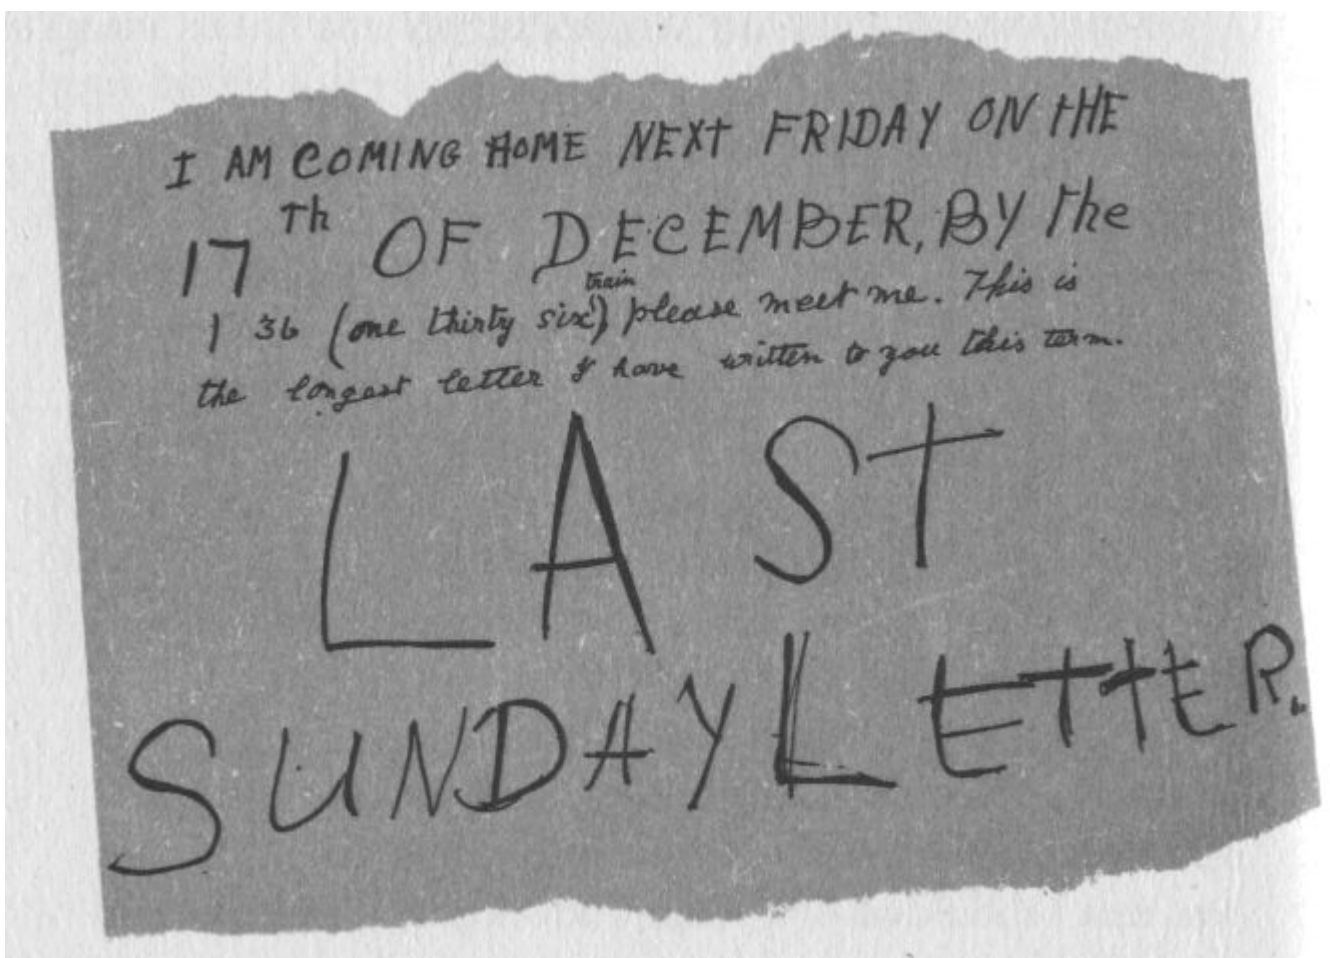 I AM COMING HOME NEXT FRIDAY ON tHE
17 Th OF DECEMBER, BY the
train
1 36 (one thirty six) please meet me. This is
the longest letter I have written to you this term.
LAST
SUNDAY LETTER.